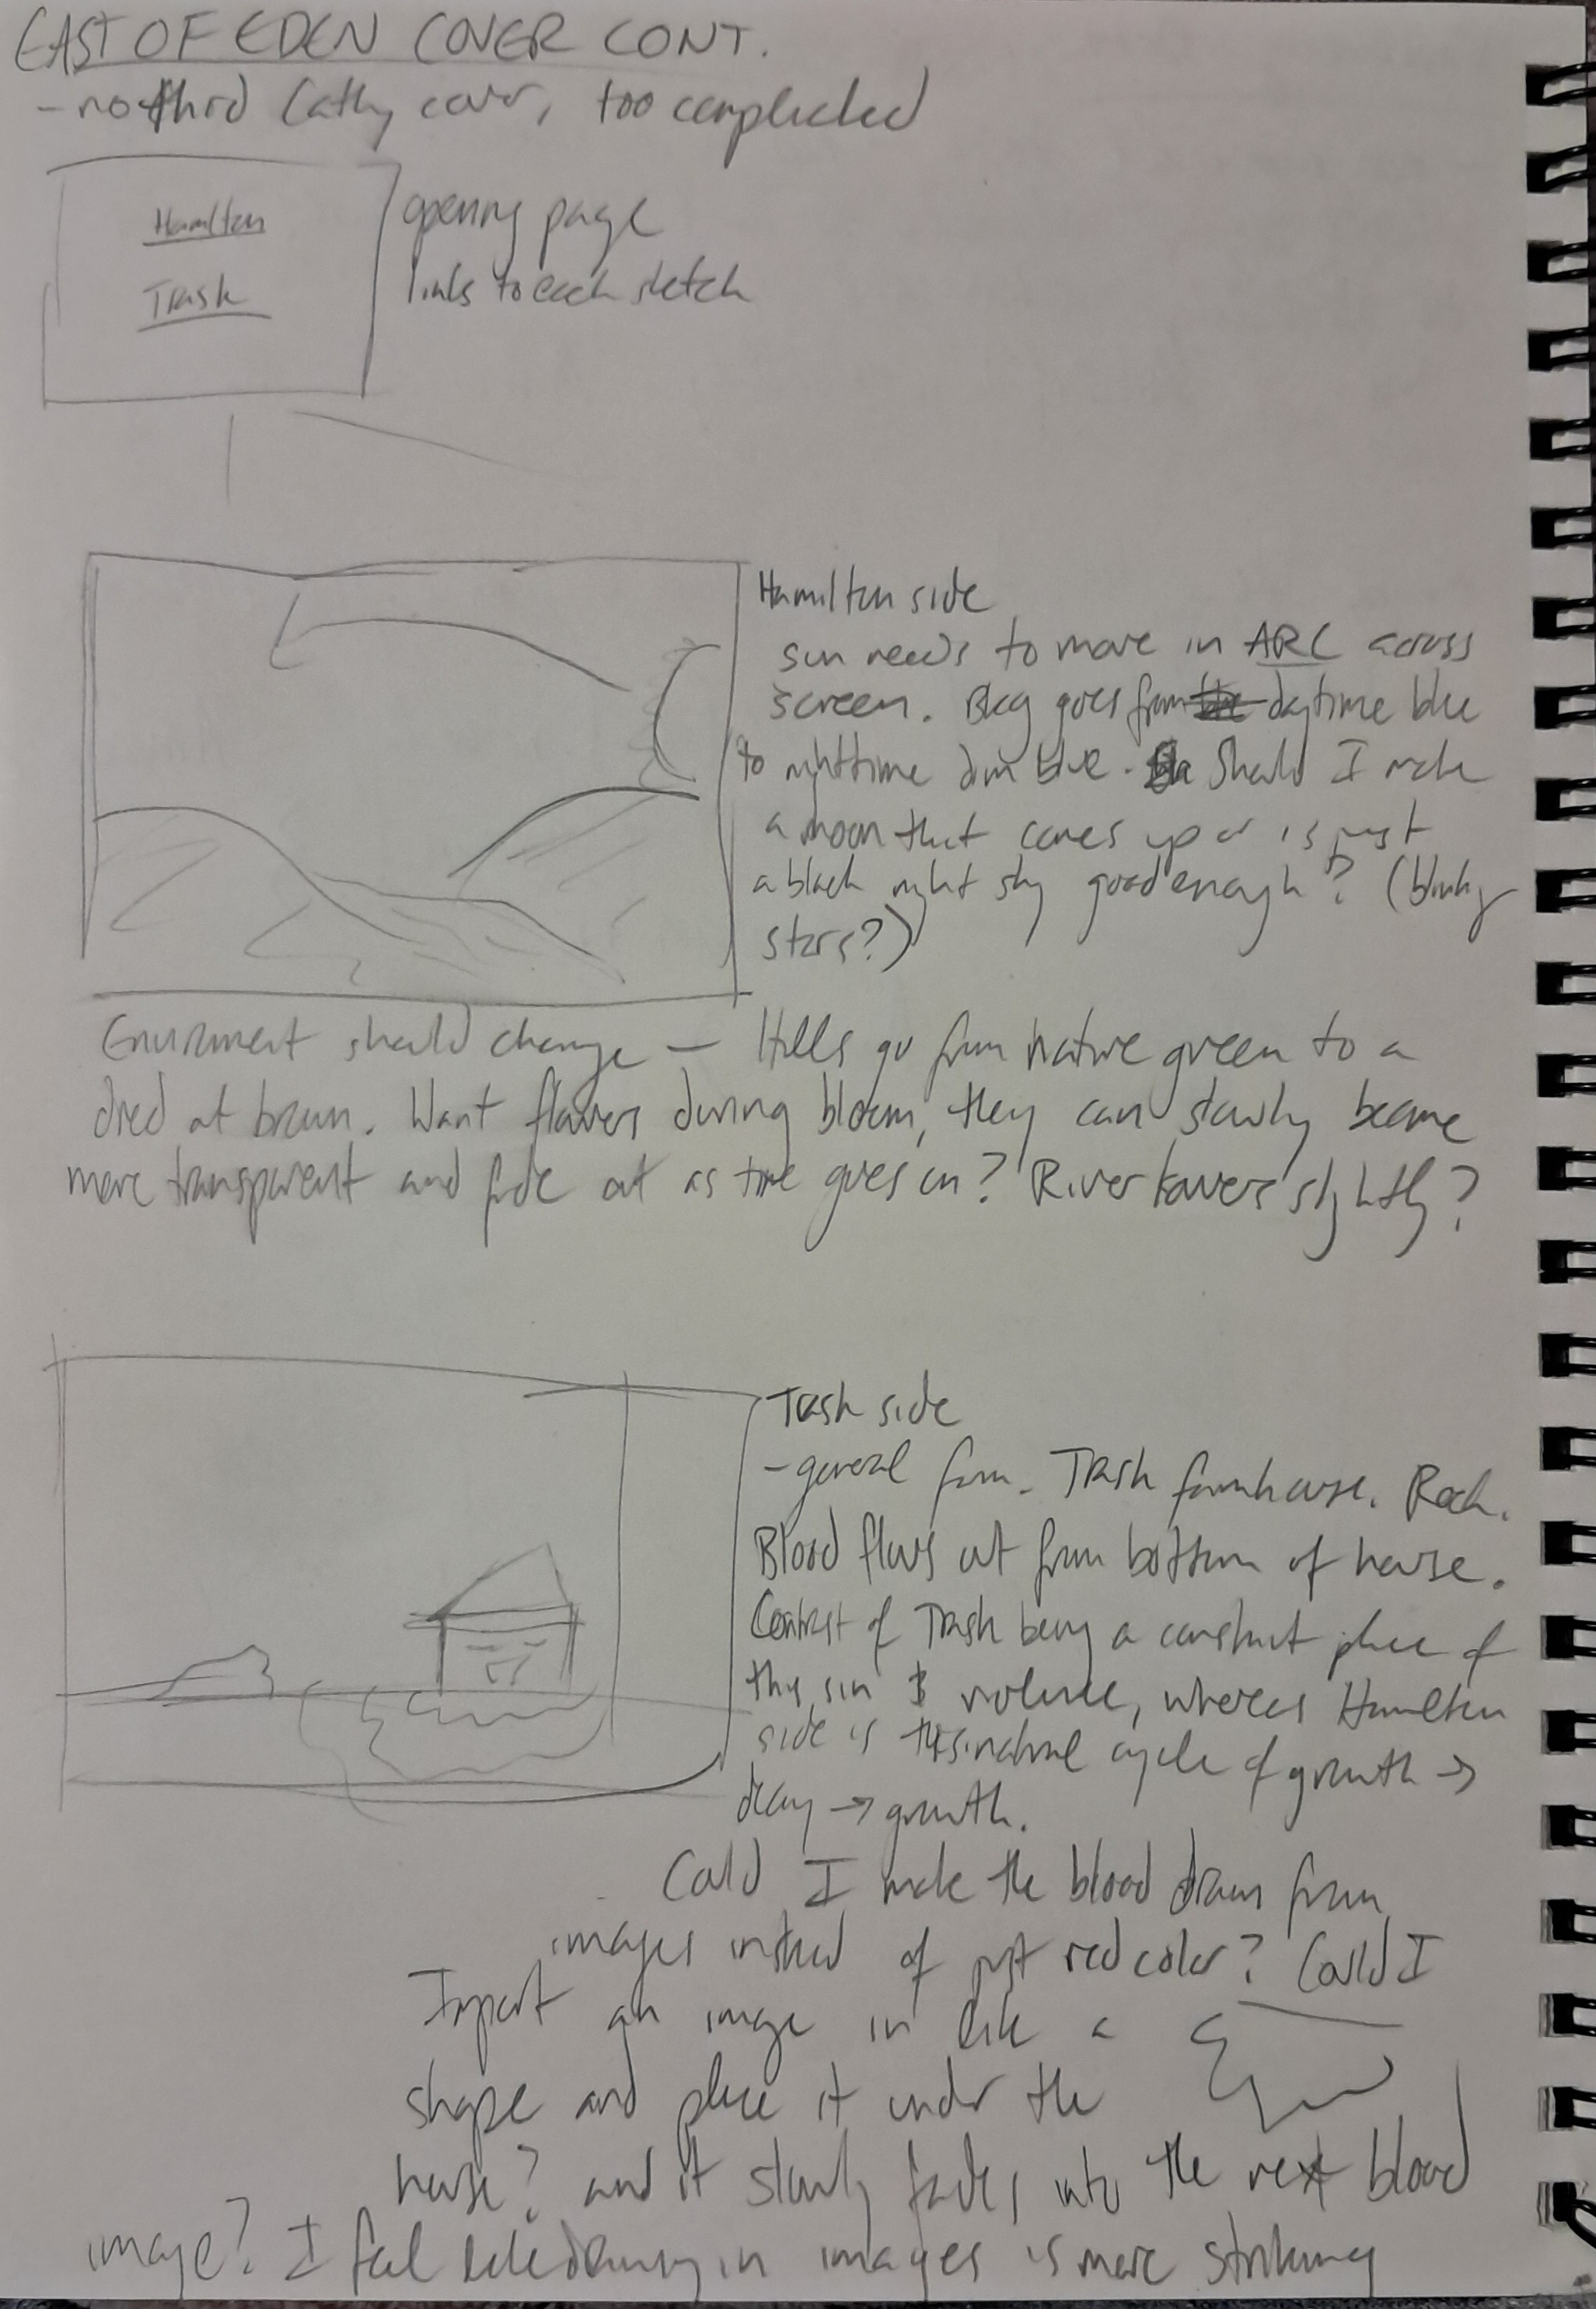 EAST OF EDEN COVER CONT.
- no third Cathy cover, too complicated
Hamilton
Trask
opening page
links to each sketch
Hamilton side
sun needs to move in ARC across
screen. Bkg goes from daytime blue
to nighttime dim blue. Should I make
a moon that comes up or is just
a black night sky good enough? (blinky
stars?)
Envirnment should change — Hills go from native green to a
dried out brown. Want flowers during bloom, they can slowly become
more transparent and fade out as time goes on? River lowers slightly?
Trask side
- general farm. Trask farmhouse. Rock.
Blood flows out from bottom of house.
Contrast of Trask being a constant place of
this sin & violence, whereas Hamilton
side is this natural cycle of growth →
decay → growth.
Could I make the blood drawn from
images instead of just red color? Could I
Import an image in like a
shape and place it under the
house? and it slowly fades into the next blood
image? I feel like drawing in images is more striking